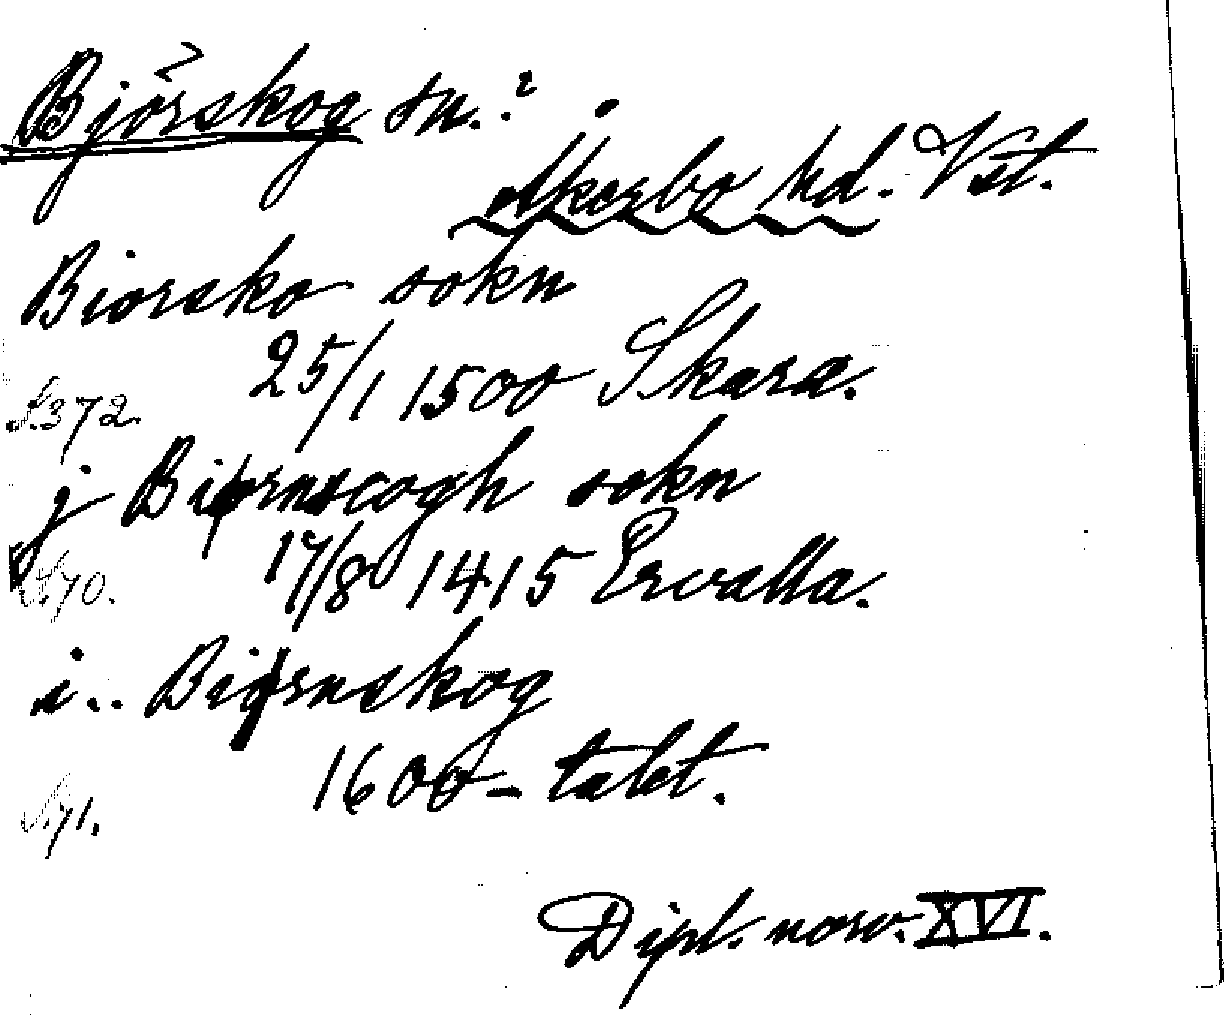 Björskog sn.?
Åkerbo hd. Vstl.
Biorsko sokn
25/1 1500 Skara.
S.372.
j Biørnscogh sokn
17/8 1415 Ervalla.
S.70.
i.. Biørnskog
1600-talet.
S.71.
Dipl. norv. XVI.